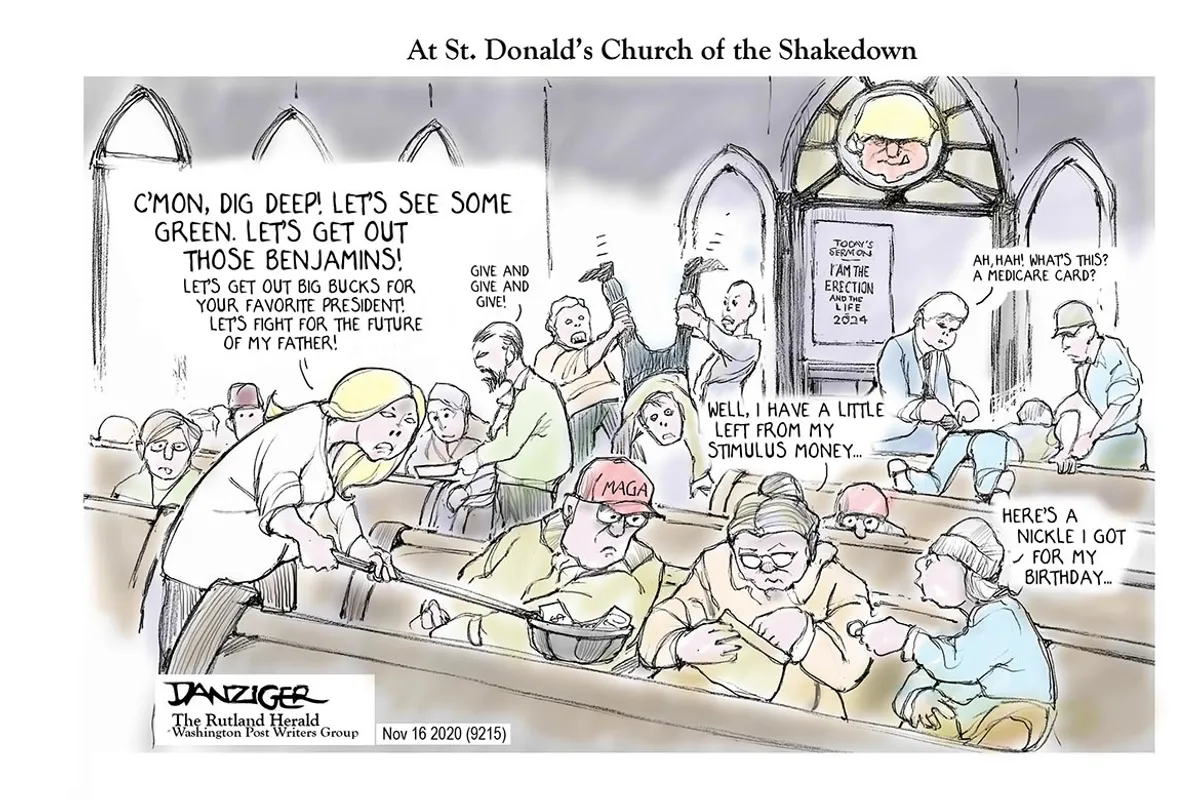 At St. Donald's Church of the Shakedown
C'MON, DIG DEEP! LET'S SEE SOME
GREEN. LET'S GET OUT
THOSE BENJAMINS!
LET'S GET OUT BIG BUCKS FOR
YOUR FAVORITE PRESIDENT!
LET'S FIGHT FOR THE FUTURE
OF MY FATHER!
GIVE AND
GIVE AND
GIVE!
TODAY'S
SERMON
I AM THE
ERECTION
AND THE
LIFE
2024
AH, HAH! WHAT'S THIS?
A MEDICARE CARD?
WELL, I HAVE A LITTLE
LEFT FROM MY
STIMULUS MONEY...
MAGA
HERE'S A
NICKLE I GOT
FOR MY
BIRTHDAY...
DANZIGER
The Rutland Herald
Washington Post Writers Group
Nov 16 2020 (9215)